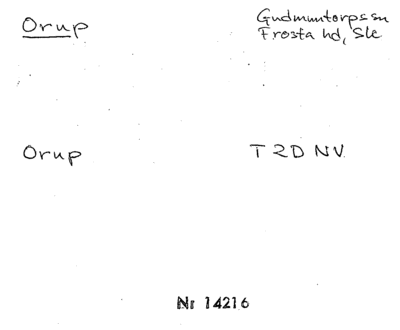 Orup
Gudmuntorps sn
Frosta hd, Ske
Orup
T 2D NV.
Nr 14216